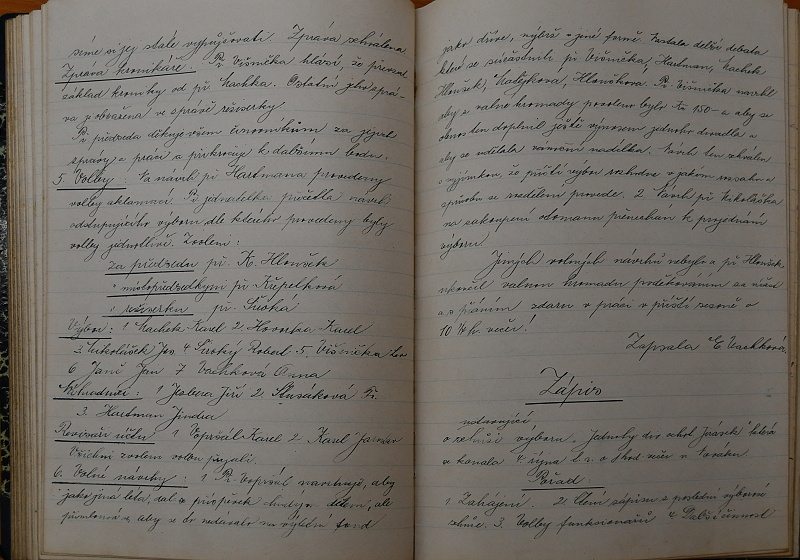 síme si jej stále vypůjčovati. Zpráva schválena
Zpráva kronikáře: Př. Višnička hlásí, že převzal
základ kroniky od př. Machka. Ostatní jeho zprá-
va pobavena ve zprávě režisérky.
Př. předseda děkuje všem činovníkům za jejich
zprávy a práci a přikročuje k dalšímu bodu.
5. Volby: Na návrh př. Hartmana provedeny
volby aklamací. Př. jednatelka přečtla návrh
odstupujícího výboru dle kterého provedeny byly
volby jednotlivě. Zvoleni:
Za předsedu př. K. Hloušek
" místopředsedkyni př. Křepelková
" režisérku př. Široká
Výbor: 1 Machek Karel 2 Hovorka Karel
3. Mikolášek Jos 4 Široký Robert 5 Višnička
6 Janů Jan 7 Vacková Anna
Náhradníci: 1 Jiří 2.
3. Hartman Jindra
Revisoři účtů 1 Vopršál Karel 2 Karel Jaroslav
Všichni zvolení volbu přijali.
6. Volné návrhy: 1 Př. Vopršál navrhuje, aby
jako jiná léta, dal příspěvek dětem, ale
aby se to nedávalo na fond
jako dříve, nýbrž v jiné formě. Nastala delší debata
které se súčastnili př Višnička, Hartman, Machek
Hloušek, Hloušková. Př. Višnička navrhl
aby z valné hromady povoleno bylo Kč 150- a aby se
obnos ten doplnil ještě výnosem jednoho divadla a
aby se udělala vánoční nadílka. Návrh ten schválen
s výjimkou, že příští výbor rozhodne v jakém rozsahu a
způsobu se rozdělení provede. 2. Návrh př Mikoláška
na zakoupení otomanu přenechán k projednání
výboru.
Jiných volných návrhů nebylo a př Hloušek
ukončil valnou hromadu poděkováním za účast
a s přáním zdaru v práci v příští sezoně o
10 ¼ h. večer!
Zapsala E Vacková.
Zápis
o schůzi výboru Jednoty div. ochot. "Jirásek" která
se konala 4. října t. r. o 8 hod večer v
Pořad
1. Zahájení. 2. Čtení zápisu z poslední výborové
schůze. 3. Volby funkcionářů 4 Další činnost